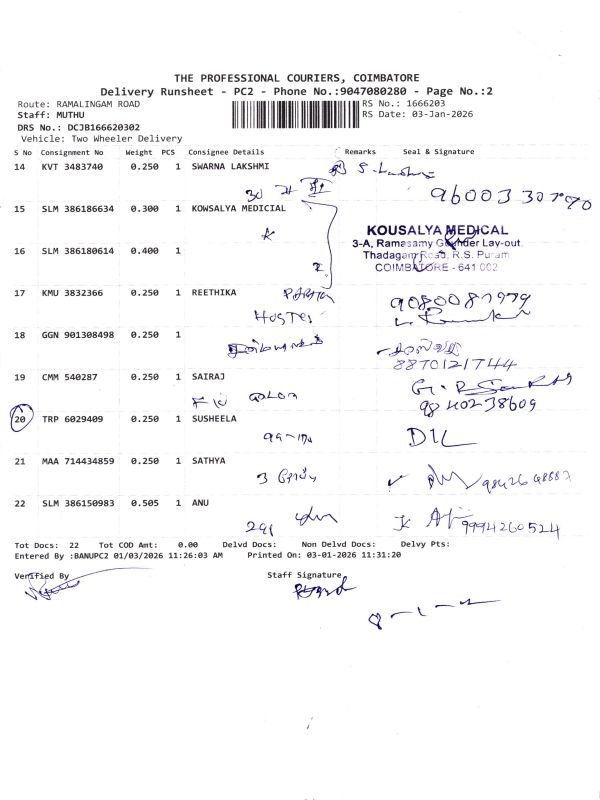 THE PROFESSIONAL COURIERS, COIMBATORE
Delivery Runsheet - PC2 - Phone No.:9047080280 - Page No.:2
Route: RAMALINGAM ROAD
RS No.: 1666203
Staff: MUTHU
RS Date: 03-Jan-2026
DRS No.: DCJB166620302
Vehicle: Two Wheeler Delivery
S No Consignment No Weight PCS Consignee Details Remarks Seal & Signature
14 KVT 3483740 0.250 1 SWARNA LAKSHMI
15 SLM 386186634 0.300 1 KOWSALYA MEDICIAL
KOUSALYA MEDICAL
3-A, Ramasamy Gounder Lay-out
Thadagam Road, R.S. Puram
COIMBATORE - 641 002
16 SLM 386180614 0.400 1
17 KMU 3832366 0.250 1 REETHIKA
HOSTEL
18 GGN 901308498 0.250 1
8870121744
19 CMM 540287 0.250 1 SAIRAJ
9840238609
20 TRP 6029409 0.250 1 SUSHEELA
21 MAA 714434859 0.250 1 SATHYA
22 SLM 386150983 0.505 1 ANU
9994260524
Tot Docs: 22 Tot COD Amt: 0.00 Delvd Docs: Non Delvd Docs: Delvy Pts:
Entered By :BANUPC2 01/03/2026 11:26:03 AM Printed On: 03-01-2026 11:31:20
Verified By
Staff Signature